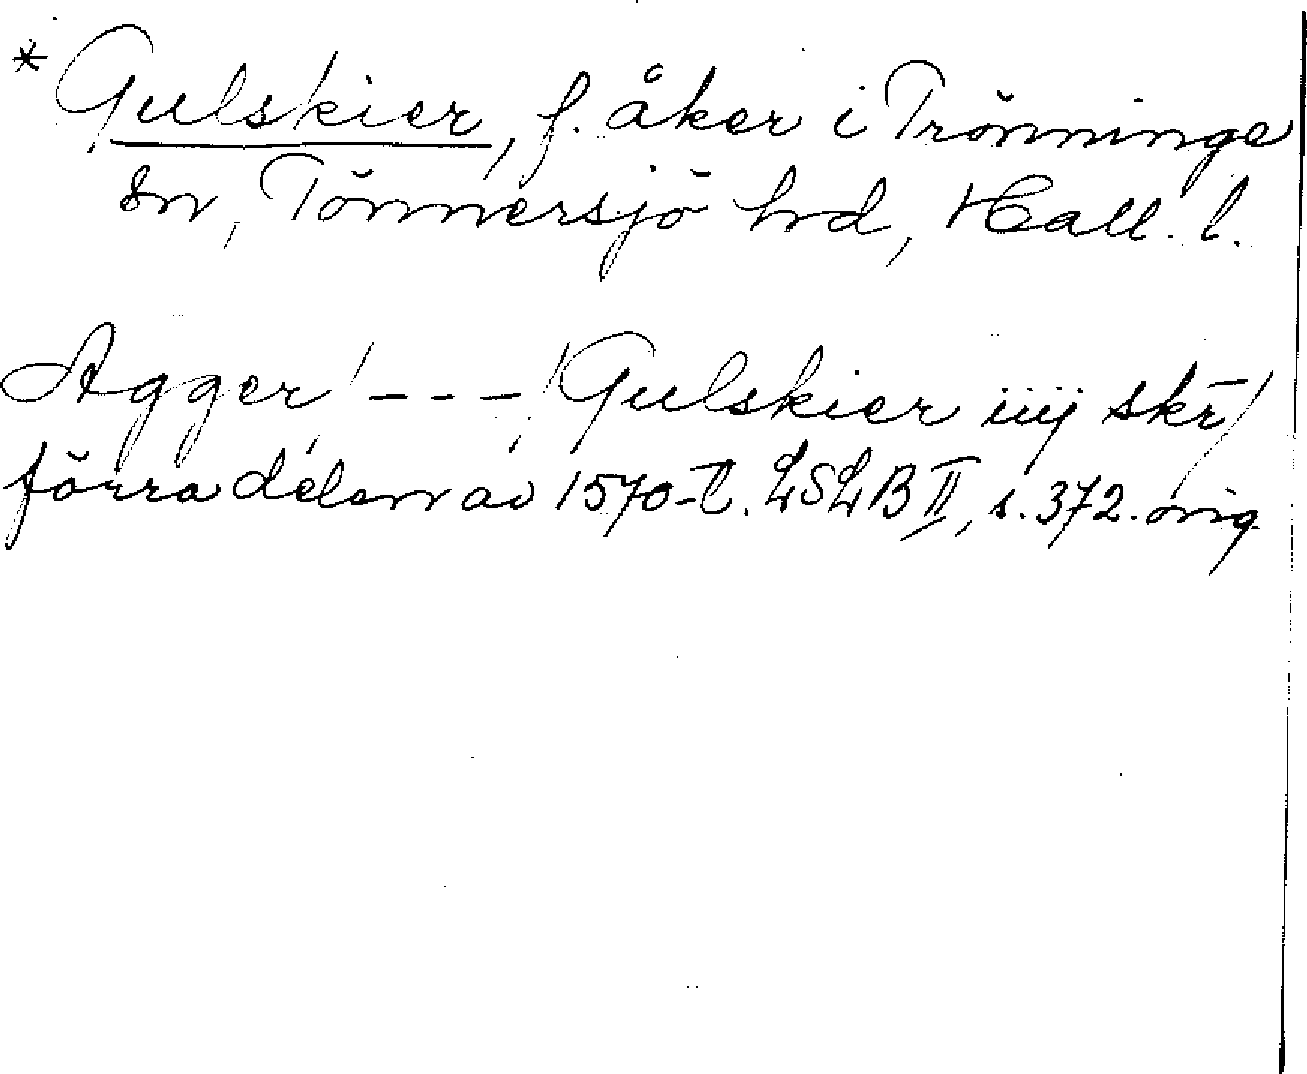 * Gulskier, f. åker i Trönninge
sn, Tönnersjö hd, Hall. l.
Agger / - - - / Gulskier iiij skr̄ /
förra delen av 1570-t. LSLB II, s. 372. orig